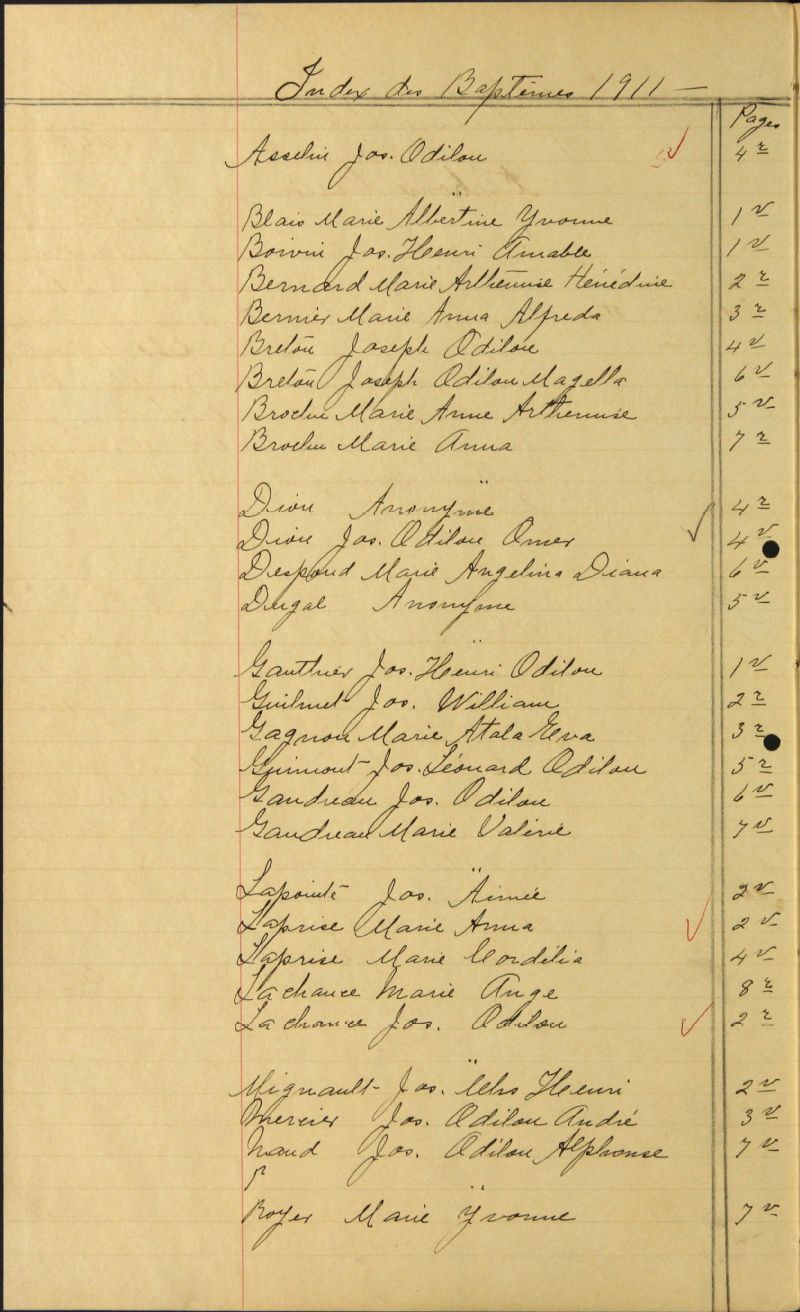 Index des Baptêmes 1911 —
Pages
Asselin Jos. Odilon 4 r
Blais Marie Albertine Yvonne 1 v
Boivin Jos. Henri Amable 1 v
Bernard Marie Arthémise Hénédine 2 r
Bernier Marie Anna Alfreda 3 r
Breton Joseph Odilon 4 v
Breton Joseph Odilon Magella 6 v
Brochu Marie Anne Arthemise 5 v
Brochu Marie Anna 7 r
Dion Anonyme 4 r
Dion Jos. Odilon Omer 4 v
Despond Marie Angelina Diana 6 v
Dugal Anonyme 5 v
Gauthier Jos. Henri Odilon 1 v
Guilmet Jos. William 2 r
Gagnon Marie Atala Eva 3 r
Guimont Jos. Léonard Odilon 5 r
Gaudreau Jos. Odilon 6 v
Gaudreau Marie Valérie 7 v
Lapointe Jos. Aimée 2 v
Laprise Marie Anna 2 v
Laprise Marie Cordélia 4 v
Lachance Marie Ange 8 r
Lachance Jos. Odilon 2 r
Mignault Jos. Henri 2 v
Mercier Jos. Odilon André 3 v
Naud Jos. Odilon Alphonse 7 v
Royer Marie Yvonne 7 v